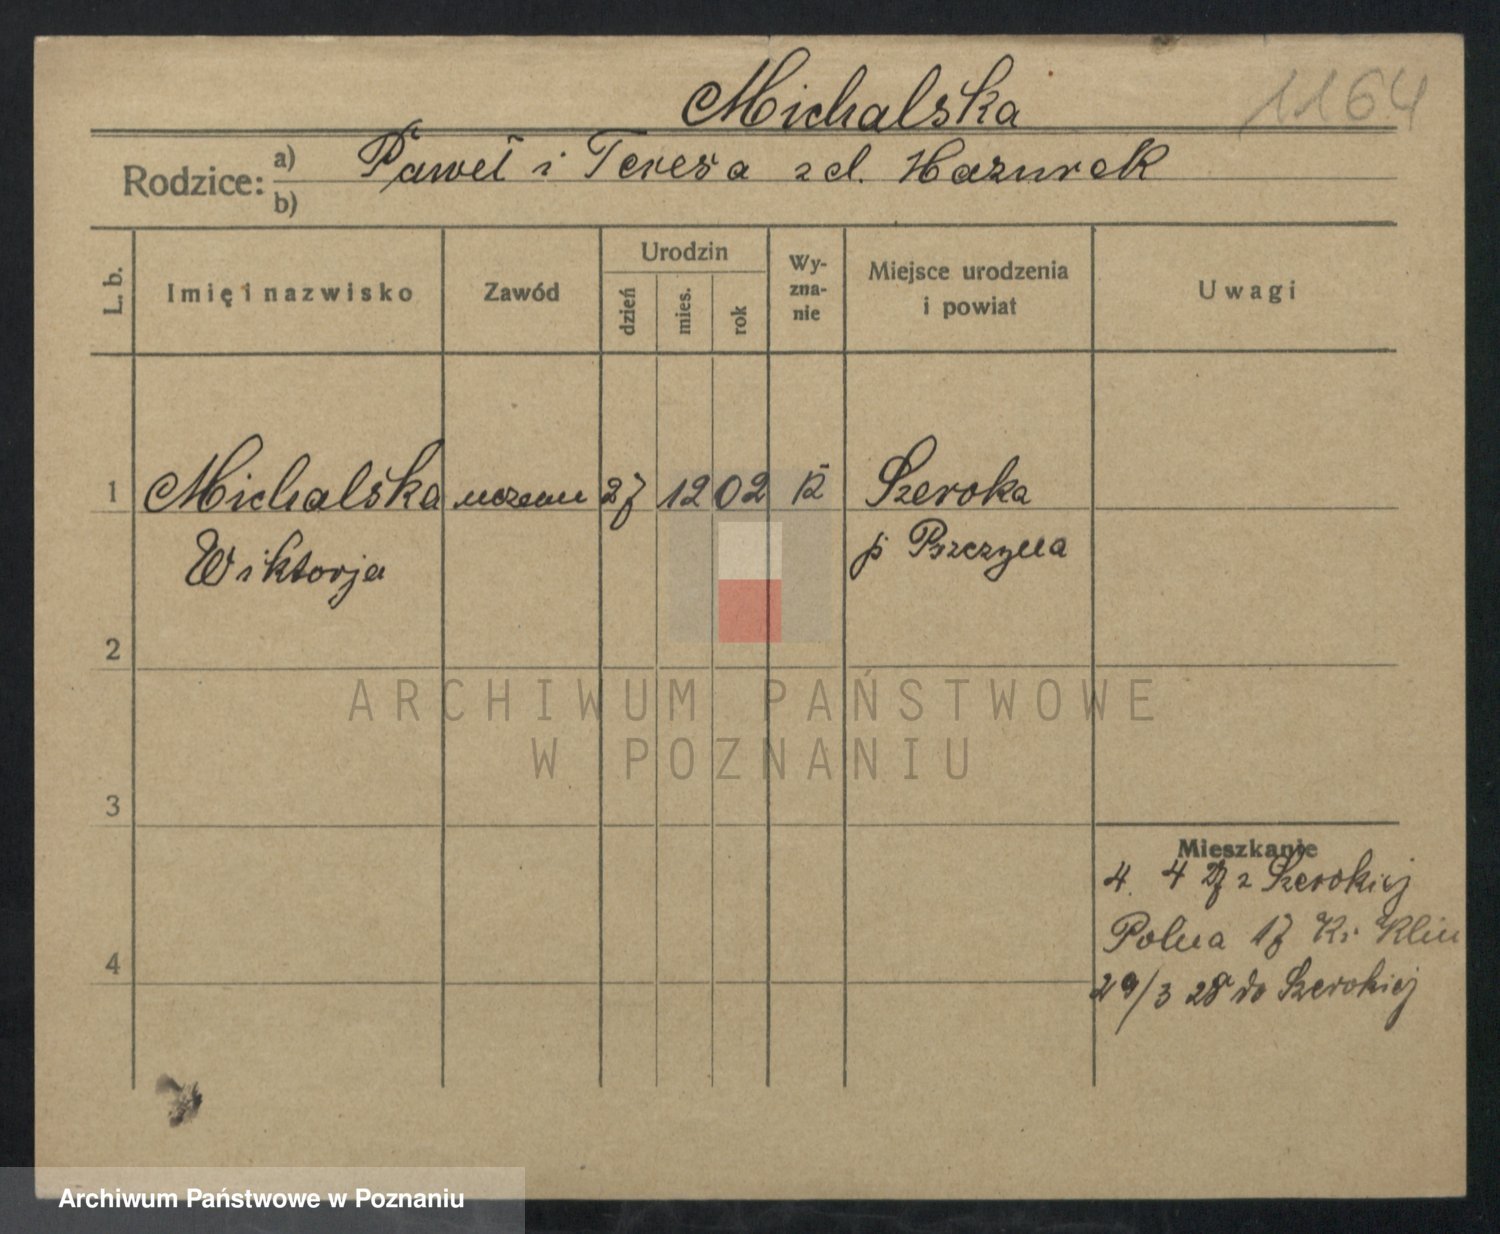 Michalska
1164
Rodzice: a) Paweł i Teresa zd. Hazurek
b)
L. b.
Imię i nazwisko
Zawód
Urodzin
dzień
mies.
rok
Wy-
zna-
nie
Miejsce urodzenia
i powiat
Uwagi
1 Michalska uczenn 27 12 02 k Szeroka
Wiktorja p Pszczyna
2
ARCHIWUM PAŃSTWOWE
W POZNANIU
3
Mieszkanie
4. 4 27 z Szerokiej
Polna 17 Kr Klin
4
29/3 28 do Szerokiej
Archiwum Państwowe w Poznaniu